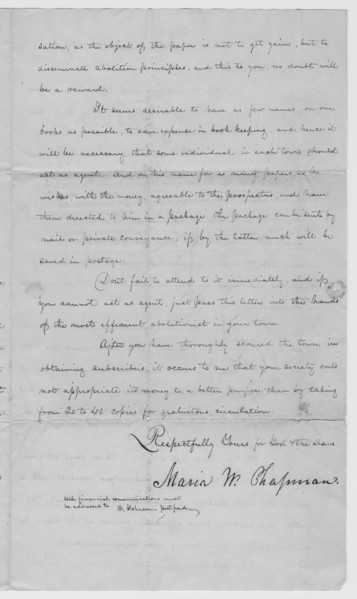 sation, as the object of the paper is not to get gains, but to
disseminate abolition principles, and this to you no doubt will
be a reward.
It seems desirable to have as few names on our
books as possible, to save expense in book keeping, and hence it
will be necessary that some individual in each town should
act as agent, send on his name for as many papers, as he
wishes, with the money, agreeable to the prospectus, and have
them directed to him in a package. The package can be sent by
mail or private conveyance, if by the latter much will be
saved in postage.
Don't fail to attend to it immediately and if
you cannot act as agent, just pass this letter into the hands
of the most efficient abolitionist in your town.
After you have thoroughly scoured the town in
obtaining subscribers, it occurs to me that your society could
not appropriate its money to a better purpose than by taking
from 20 to 40 copies for gratuitous circulation.
Respectfully Yours, for God & the slave
Maria W. Chapman.
All financial communications must
be addressed to O. Johnson post paid